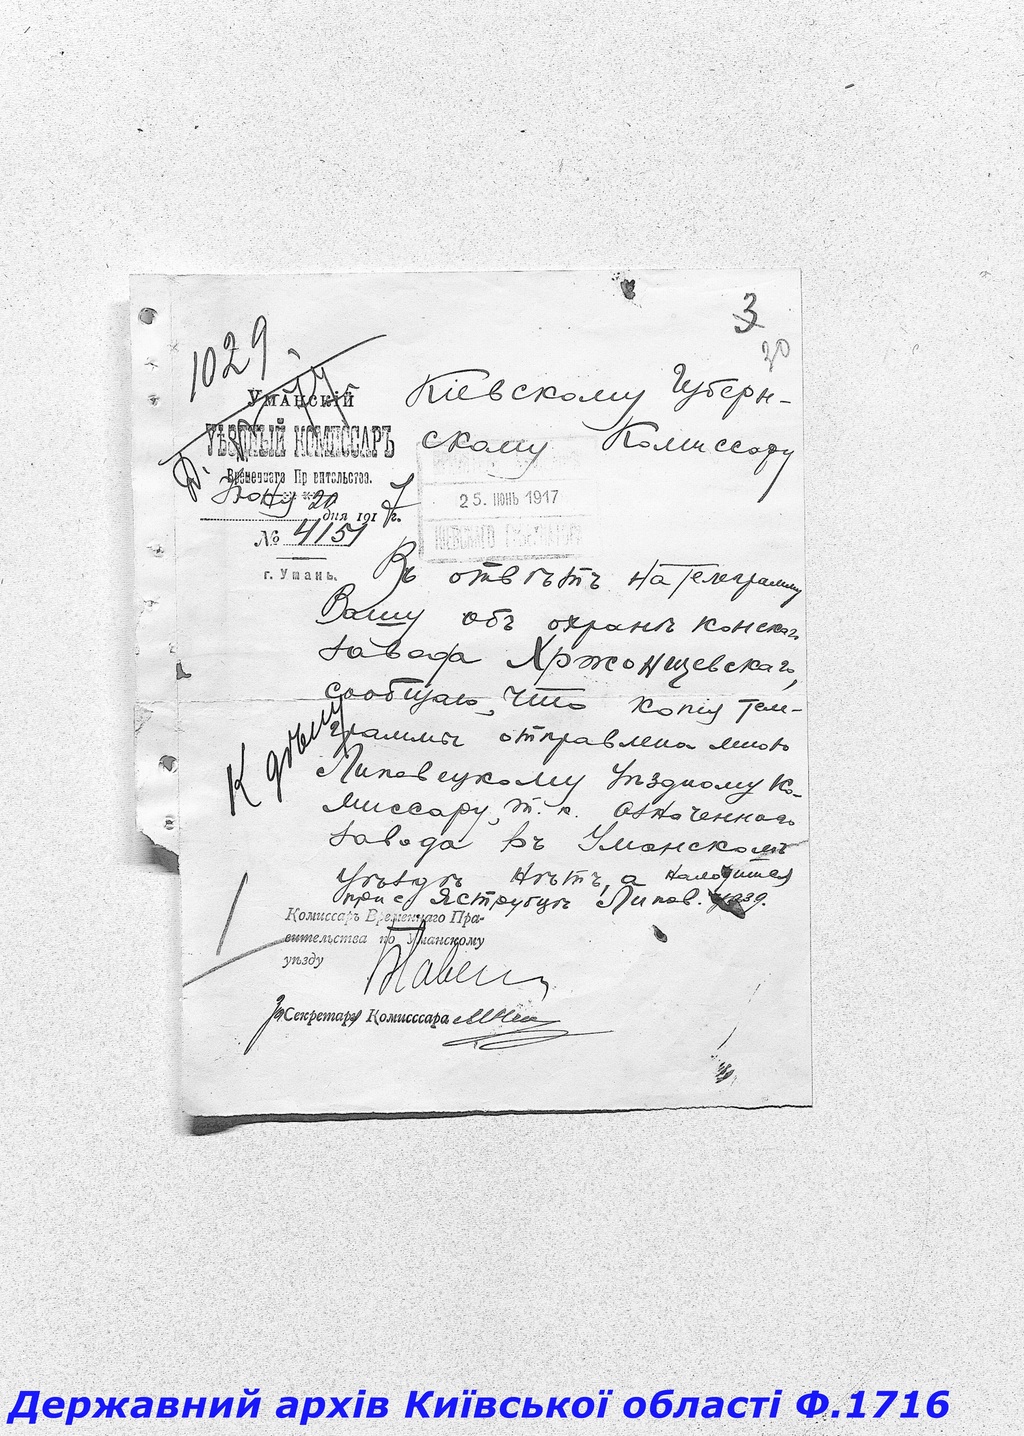 3
20
1029.
Уманскій
Уѣздный Комиссаръ
Временнаго Пр ительства.
Іюня 20 дня 1917 г.
№ 4151
г. Умань.
Кіевскому Губерн-
скому Комиссару
25. ІЮНЬ 1917
КІЕВСКАГО
Въ отвѣтъ на телеграмму
Вашу объ охранѣ конскаго
завода Хржонщевскаго,
сообщаю, что копія теле-
граммы отправлена мною
Липовецкому Уѣздному Ко-
миссару, т. к. означеннаго
завода въ Уманскомъ
уѣздѣ нѣтъ, а находится
при с. Яструбцѣ Липов. уѣзд.
К дѣлу
Комиссаръ Временнаго Пра-
вительства по Уманскому
уѣзду
За Секретаря Комисссара
Державний архів Київської області Ф.1716